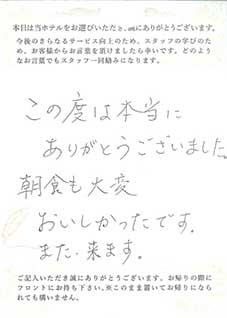 本日は当ホテルをお選びいただき、誠にありがとうございます。
今後のさらなるサービス向上のため、スタッフの学びのた
め、お客様からお言葉を頂けましたら幸いです。どのよう
なお言葉でもスタッフ一同励みになります。
この度は本当に
ありがとうございました。
朝食も大変
おいしかったです。
また、来ます。
ご記入いただき誠にありがとうございます。お帰りの際に
フロントにお持ち下さい。※このまま置いてお帰りになら
れても構いません。